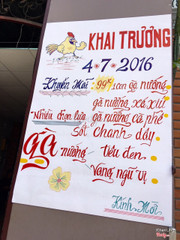 KHAI TRƯƠNG
4-7-2016
Khuyến Mãi: 99k 1 con gà nướng
gà nướng xá xíu
Nhiều chọn lựa gà nướng cà phê
Sốt chanh dây
GÀ nướng tiêu đen
Vàng ngũ vị
Kính Mời